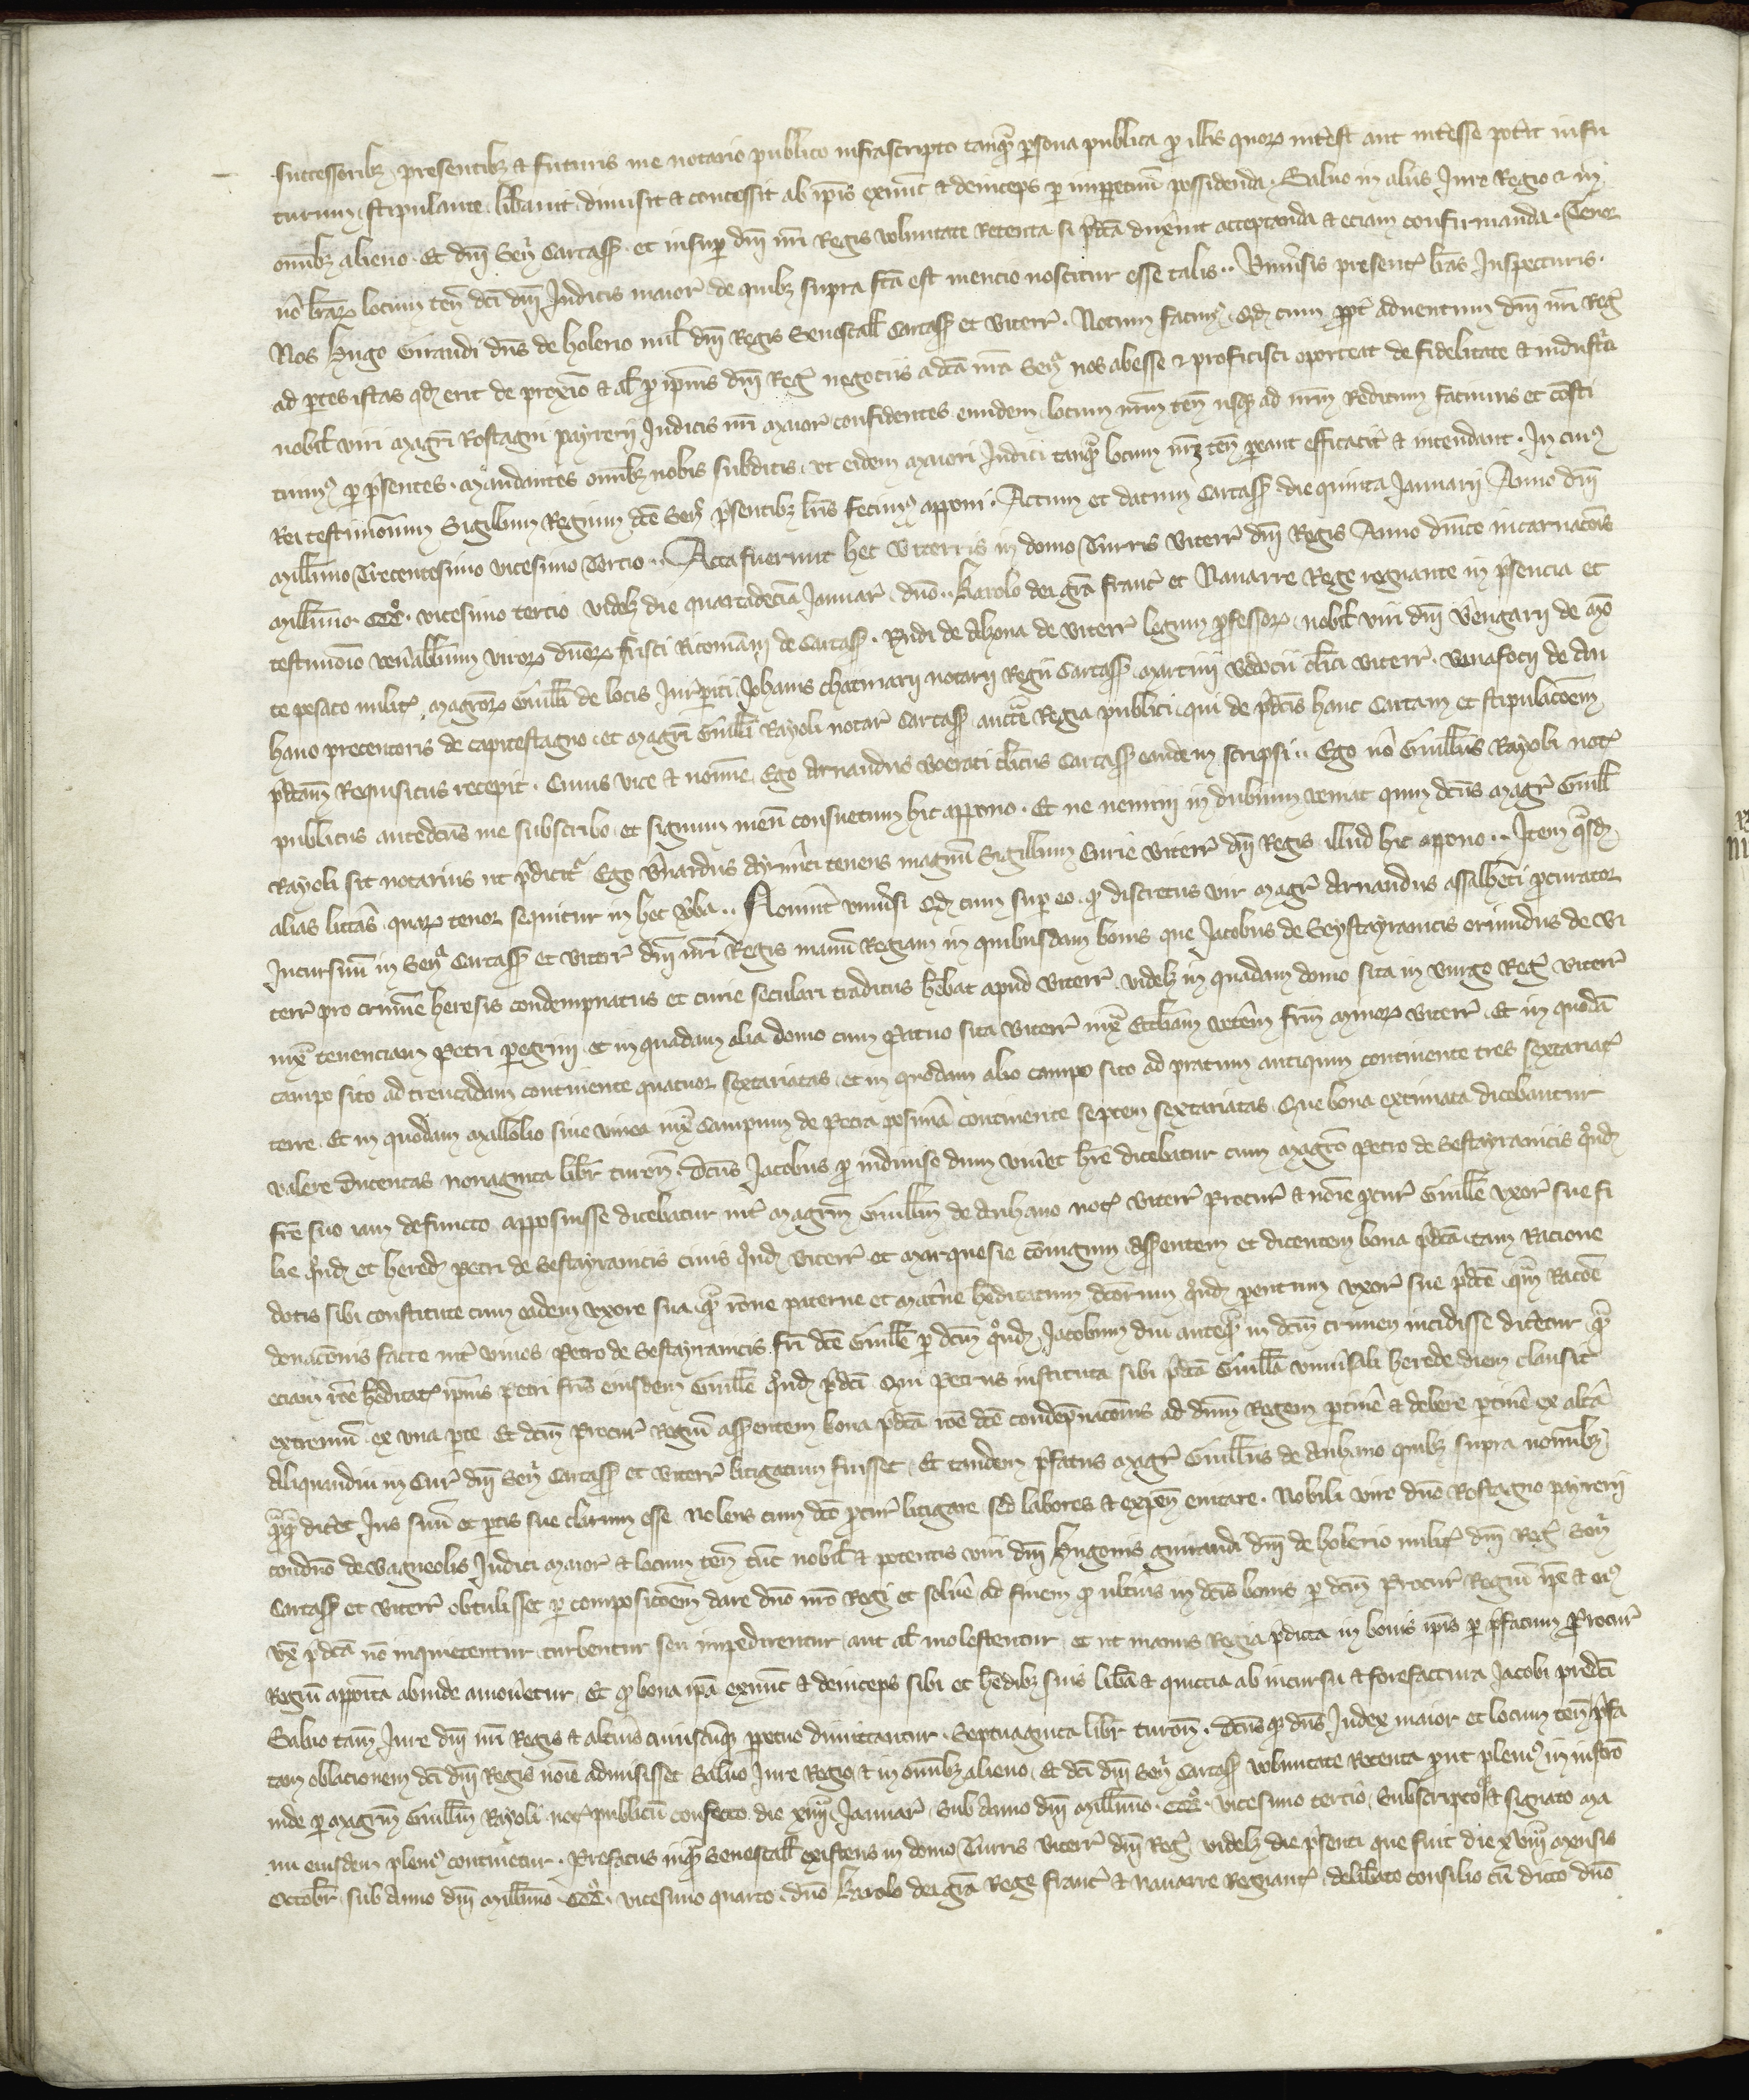 successoribz presentibz et futuris me notario publico infrascripto tanqȝ persona publica pro illis quorum interest aut interesse poterit infu
turum stipulante libavit dimisit et concessit ab ipis exnunc et deinceps per imperpetuum possidenda. Salvo in aliis Jure Regio et in
omibz alieno. Et dni Sen Carcass. et insuper dni nri Regis voluntate Retenta si pdca duxerint acceptanda et eciam confirmanda. Tenor
vo lrarum locum ten dci dni Judicis maior de quibz supra fca est mencio noscitur esse talis.. Universis present lras Inspecturis.
Nos Hugo Giraudi dns de holerio mil dni Regis Senescall Carcass et Biterr. Notum facimus qd cum propter adventum dni nri Reg
ad partes istas qd erit de proximo et al pro ipius dni Reg negociis a dca nra Sen nos abesse et proficisci oporteat de fidelitate et industria
nobil viri magri Rostagni payrerii Judicis nri maior confidentes eundem locum nrm ten usqȝ ad nrm Reditum facimus et consti
tuimus per presentes. Mandantes omibz nobis subditis ut eidem maiori Judici tanqȝ locum nrm ten pareant efficaciter et intendant. In cuius
Rei testimonium Sigillum Regium dce Sen psentibz lris fecimus apponi. Actum et datum Carcass die quinta Januarii Anno dni
millimo Trecentesimo vicesimo Tercio.. Acta fuerunt hec Biterris in domo Turris Biterr dni Regis Anno dnice incarnacois
millimo. CCCo. vicesimo tercio videlz die quartadecia Januar. dno.. Karolo dei gra Franc et Navarre Rege regnante in psencia et
testimonio venabilium virorum dnorum Frisci Ricomani de Carcass. Rndi de Alzona de Biterr legum professorum. nobil viri dni Bengarii de mon
te pesato milit. magrorum Guilli de locis Jurisperiti Johanis chatmarii notarii Regii Carcass Martini clici Biterr. de An
hano precentoris de capitestagno et magri Guilli Rayoli notar Carcass auctte Regia publici qui de pdcis hanc Cartam et stipulacoem
pdcam Requisitus recepit. Cuius vice et nomine Ego Arnaudus clicus Carcass eandem scripsi.. Ego vo Guillmus Rayoli not
publicus antedcus me subscribo et signum meum consuetum hic appono. Et ne nemini in dubium veniat quin dcus magr Guill
Rayoli sit notarius ut pdicitr Ego Bnardus Aymici tenens magnum Sigillum Curie Biterr dni Regis illud hic appono.. Item qasd
alias litteras quarum tenor sequitur in hec vba.. Noverint universi qd cum super eo qȝ discretus vir magr Arnaudus assalbenci pcurator
Incursuum in Sen Carcass et Biterr dni nri Regis manum Regiam in quibusdam bonis que Jacobus de Seystayranicis oriundus de Bi
terr pro crimine heresis condempnatus et curie seculari traditus hebat apud Biterr. videlz in quadam domo sita in burgo Reg Biterr
iuxta tenenciam Petri peregrini et in quadam alia domo cum Patuo sita Biterr iuxta Eccliam veterem frm minorum Biterr. Et in quodam
campo sito ad trencadam continente quatuor sextariatas et in quodam alio campo sito ad pratum antiqum continente tres sextariat
terre. Et in quodam mallolio sive vinea iuxta Campum de Petra posima continente septem sextariatas. Que bona extimata dicebantur
valere Ducentas nonaginta libr turon. dcus Jacobus pro indiviso dum viveret hre dicebatur cum magro Petro de Sestayranicis qnd
fre suo iam defuncto apposuisse dicebatur int magrm Guillm de Anhano not Biterr Procur et noie pcur Guille uxor sue fi
lie qnd et hered Petri de Sestayranicis civis qnd Biterr et Marquesie coniugum Asserentem et dicentem bona pdca tam Racione
dotis sibi constitute cum eadem uxore sua qȝ rone paterne et materne heditatum dcorum qnd parentum uxor sue pdce qm Racoe
donacois facte int vivos Petro de Sestayranicis fri dce Guille per dcm qnd Jacobum diu anteqȝ in dcm crimen incidisse diceretur qȝ
eciam roe heditat ipius Petri fris eiusdem Guille qnd pdci Qui Petrus instituta sibi pdca Guilla universali herede diem clausit
extremum ex una parte Et dcm Procur Regium asserentem bona pdca roe dce condepnacois ad dnm Regem pertinere et debere ptinere ex altera
Aliquandiu in Cur dni Sen Carcass et Biterr litigatum fuisset. Et tandem pfatus magr Guillmus de Anhano quibz supra nominibz
qȝqȝ diceret Jus suum et partis sue clarum esse Nolens cum dco pcur litigare sed labores et expen evitare. Nobili viro dno Rostagno payrerii
condno de Vagneolis Judici maior et locum ten tunc nobil et potentis viri dni Hugonis guiraudi dni de holerio milit dni Reg Sen
Carcass et Biterr obtulisset per composicoem dare dno nro Regi et solvere ad finem qȝ ulterius in dcis bonis per dcm Procur Regium ipe et eius
ux pdca non inquietentur turbentur seu impedirentur aut al molestentur et ut manus Regia pdicta in bonis ipis per pfatum Procur
Regium apposita abinde amoveretur. Et qȝ bona ipa exnunc et deinceps sibi et heredibz suis libera et quittia ab incursu et forefactura Jacobi predci
Salvo tam Jure dni nri Regis et alterius cuiuscuqȝ perpetuo dimittantur. Septuaginta libr turon. dcusqȝ dns Judex maior et locum ten pfa
tam oblacionem dci dni Regis noie admisisset Salvo Jure Regio et in omibz alieno. Et dci dni Sen Carcass voluntate Retenta prout plenius in instro
inde per magrm Guillm Rayoli not publicum confecto die xiiii Januar. Sub Anno dni millimo. CCCo. vicesimo tercio. Subscripto et signato ma
nu eiusdem plenius continetur. Prefatus inqȝ Senescall existens in domo Turris Biterr dni Reg videlz die psenti que fuit die xviii mensis
Octobr. sub Anno dni millimo. CCCo. vicesimo quarto. dno Karolo dei gra Rege Franc et Navarre Regnant. deliberato consilio cum dicto dno